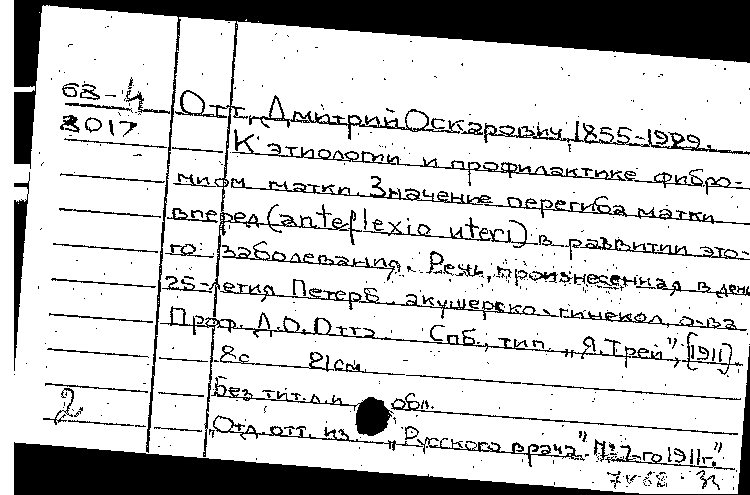 68-4
8017
Отт, Дмитрий Оскарович, 1855-1929.
К этиологии и профилактике фибро-
миом матки. Значение перегиба матки
вперед (anteflexio uteri) в развитии это-
го заболевания. Речь, произнесенная в день
25-летия Петерб. акушерско-гинекол. о-ва
Проф. Д.О. Отта. Спб., тип. „Я. Трей", [1911].
8с 21см.
Без тит. л. и обл.
„Отд. отт. из „Русского врача" №7-го 1911г."
2